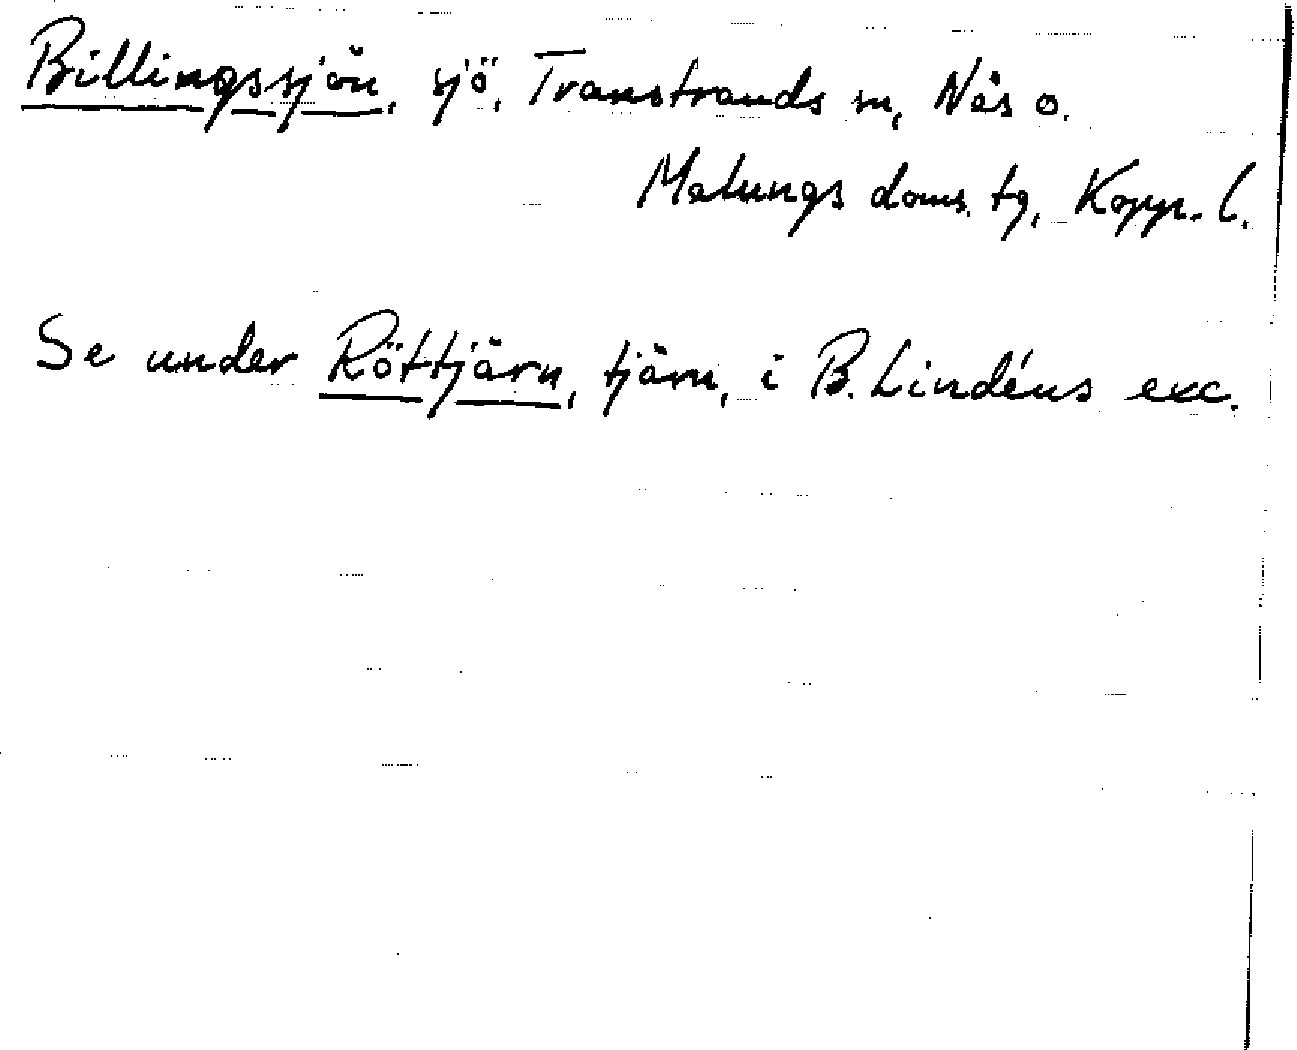 Billingssjön, sjö, Transtrands sn, Nås o.
Malungs doms. tg, Kopp. l.
Se under Röttjärn, tjärn, i B. Lindéns exc.